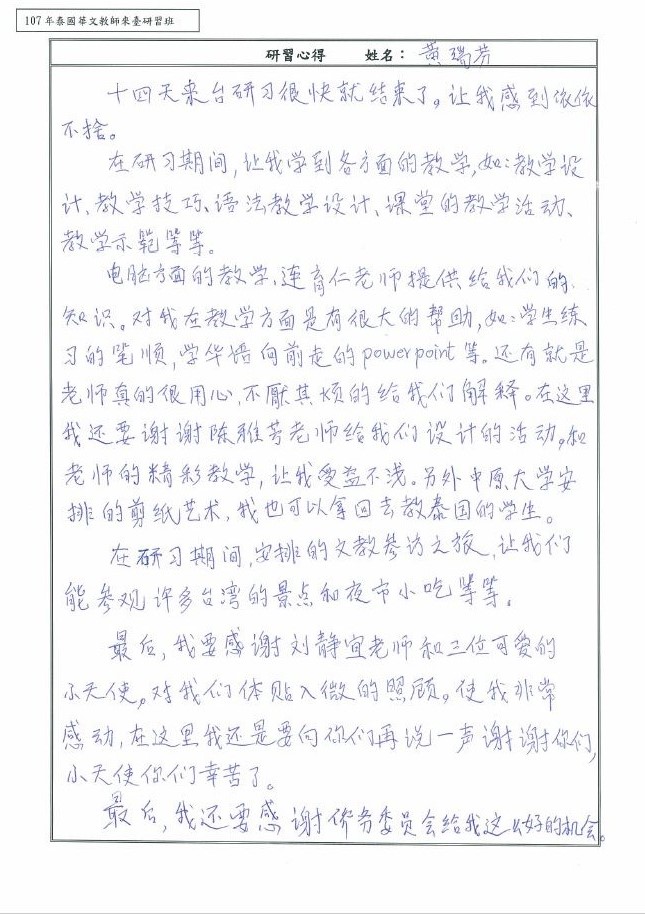 107年泰國華文教師來臺研習班
研習心得 姓名：黃瑞芳
十四天来台研习很快就结束了。让我感到依依
不捨。
在研习期间，让我学到各方面的教学，如：教学设
计、教学技巧、语法教学设计、课堂的教学活动、
教学示範等等。
电脑方面的教学、连育仁老师提供给我们的
知识。对我在教学方面是有很大的帮助，如：学生练
习的笔顺，学华语向前走的powerpoint等。还有就是
老师真的很用心，不厭其烦的给我们解释。在这里
我还要谢谢陈雅芳老师给我们设计的活动，和
老师的精彩教学，让我受益不浅。另外中原大学安
排的剪纸艺术，我也可以拿回去教泰国的学生。
在研习期间，安排的文教参访之旅，让我们
能参观许多台湾的景点和夜市小吃等等。
最后，我要感谢刘静宜老师和三位可爱的
小天使。对我们体贴入微的照顾。使我非常
感动，在这里我还是要向你们再说一声谢谢你们，
小天使你们幸苦了。
最后，我还要感谢侨务委员会给我这么好的机会。